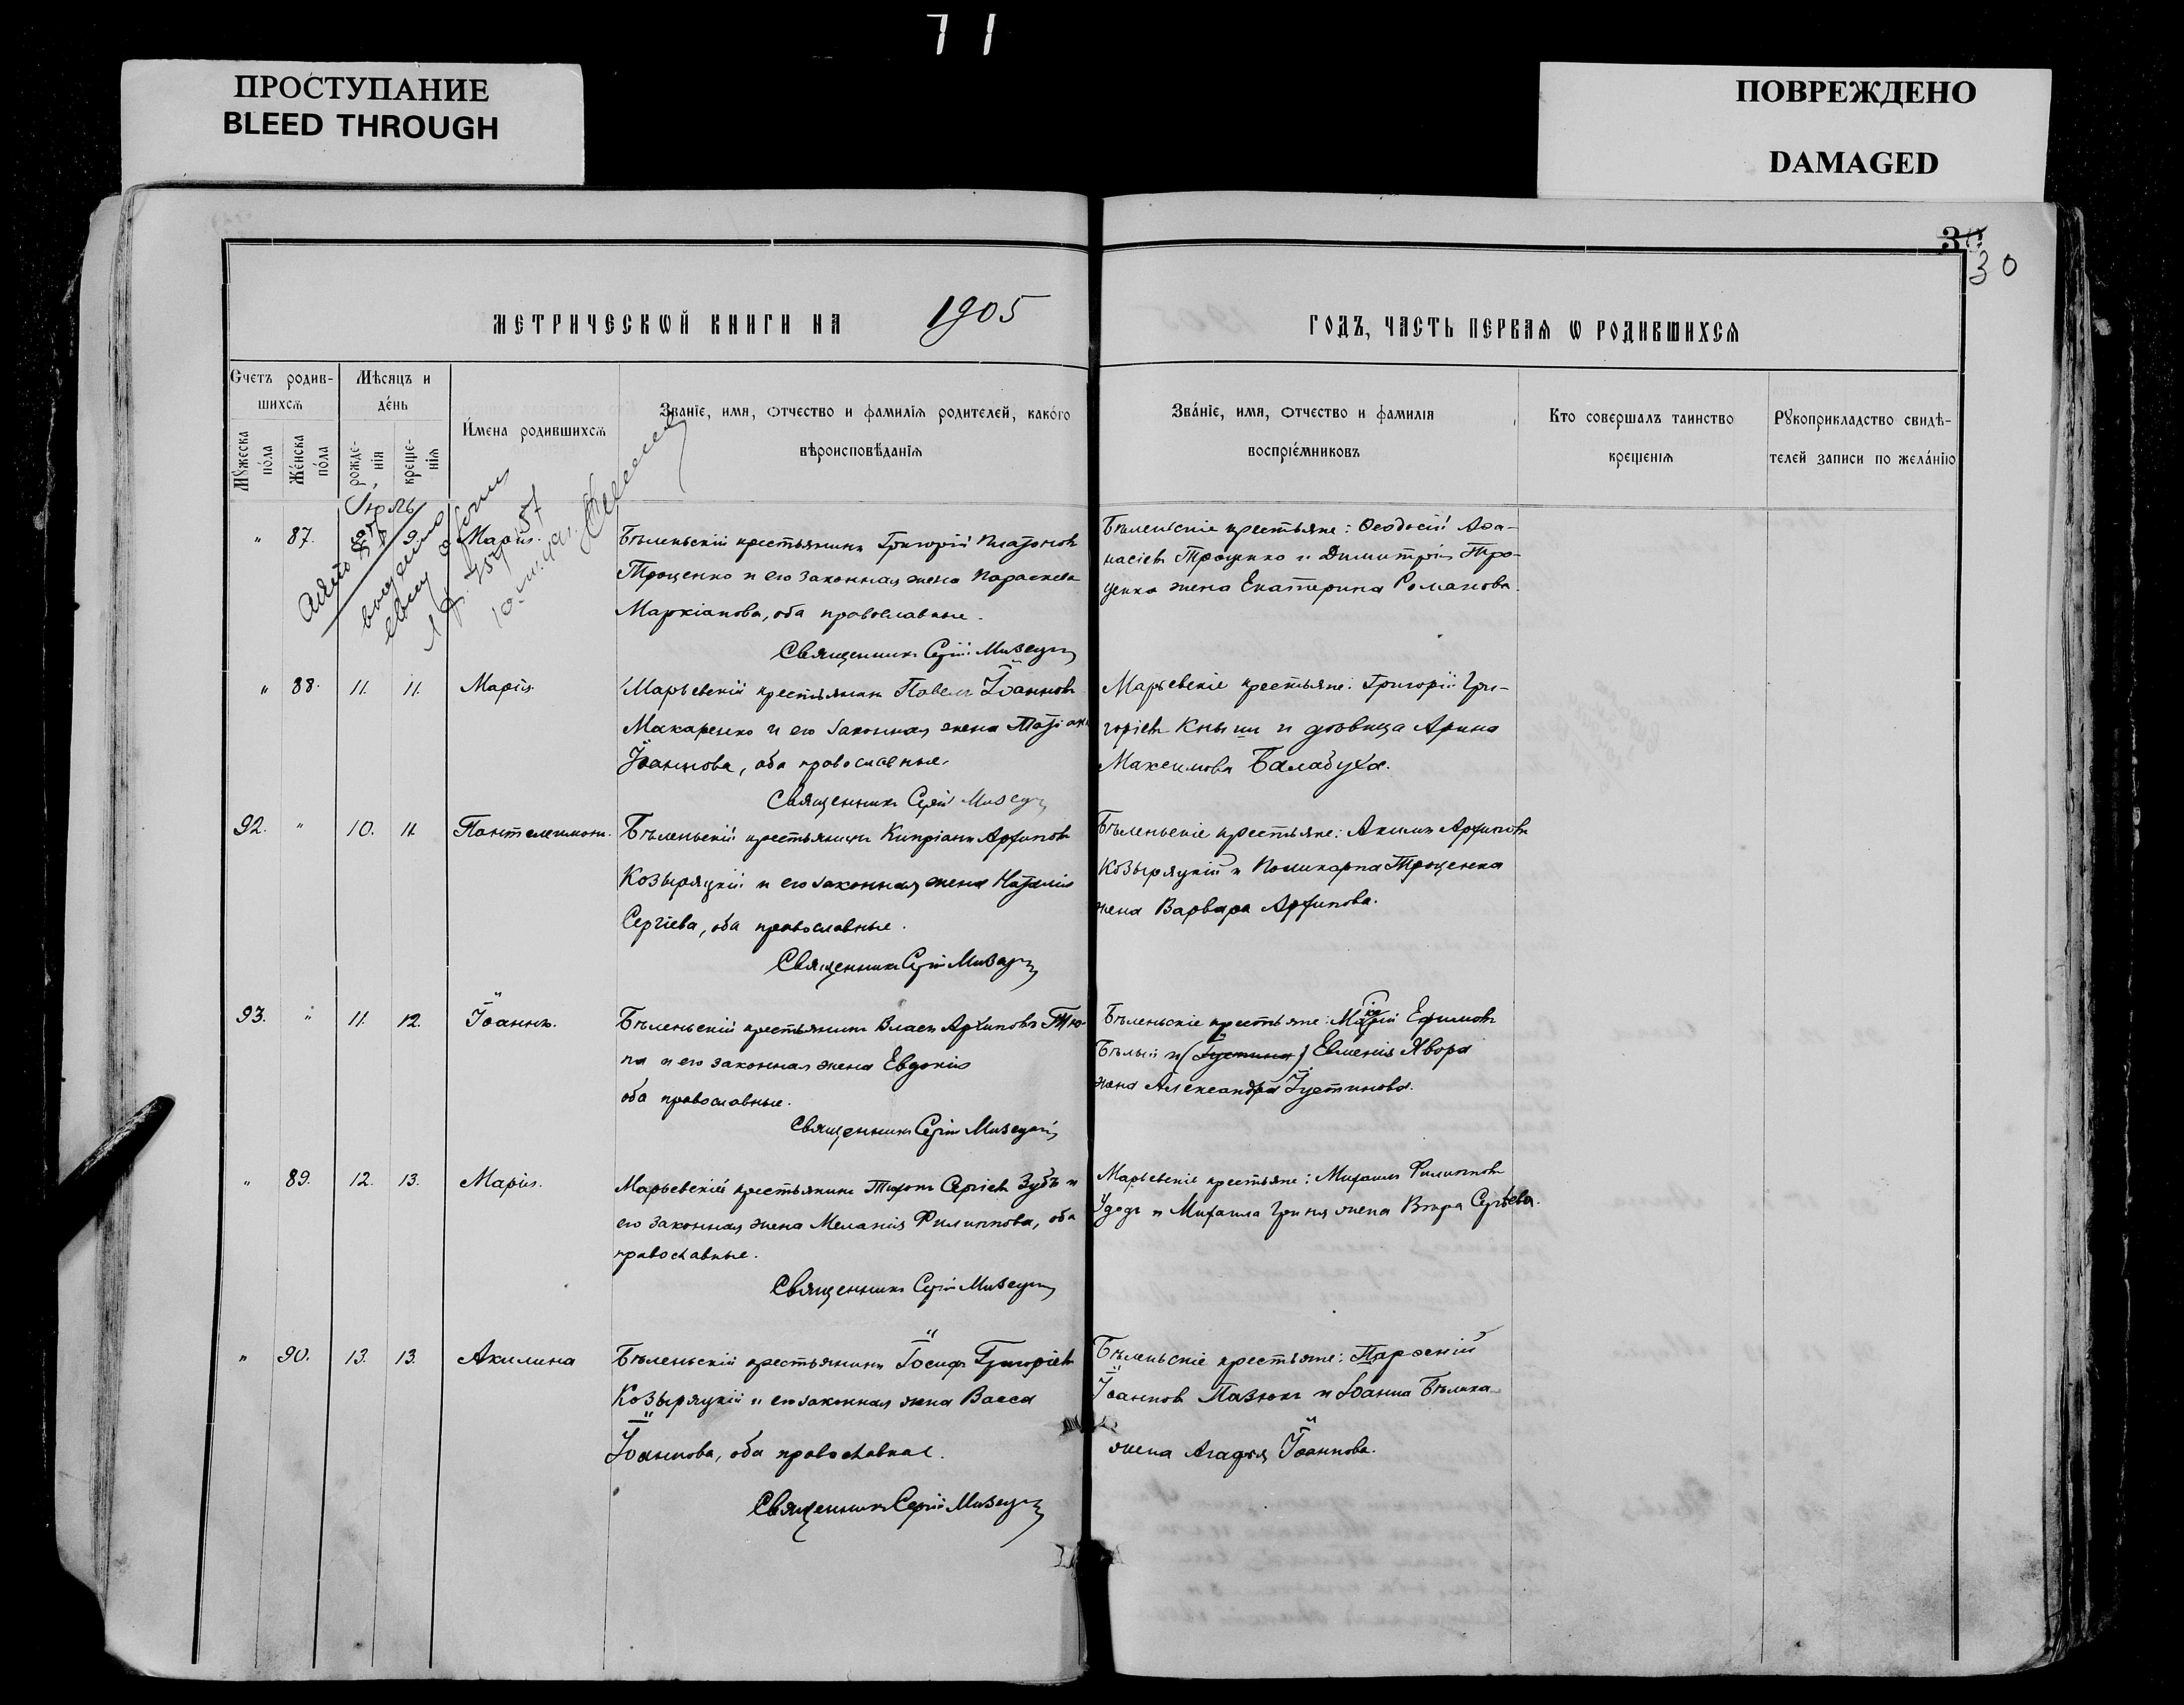 71
ПРОСТУПАНИЕ
BLEED THROUGH
ПОВРЕЖДЕНО
DAMAGED
30
МЕТРИЧЕСКѠЙ КНИГИ НА 1905
ГОДЪ, ЧАСТЬ ПЕРВАѦ Ѡ РОДИВШИХСѦ
Счетъ родив-
шихсѧ
Мѣсяцъ и
де́нь
Мꙋжеска по́ла
Же́нска по́ла
рожде-
нїѧ
креще-
нїѧ
И́мена родившихсѧ
Зва́нїе, имѧ, ѻтчество и фамилїѧ родителей, како́го
вѣроисповѣ́данїѧ
Зва́нїе, имѧ, ѻтчество и фамилїѧ
воспрїе́мниковъ
Кто совершалъ таинство
крещенїѧ
Рꙋкоприкладство свидѣ-
телей записи по жела́нїю
Іюль
" 87. 9. Марія.
Бѣленьскій крестьянинъ Григорій Платоновъ
Троценко и его законная жена Параскева
Маркіанова, оба православные.
Священникъ Сергій
Бѣленьскіе крестьяне: Ѳеодосій Аѳа-
насіевъ Троценко и Димитрія Тро-
ценко жена Екатерина Романова.
" 88. 11. 11. Марія.
Марьевскій крестьянинъ Павелъ Іоанновъ
Макаренко и его законная жена Татіана
Іоаннова, оба православные.
Священникъ Сергій
Марьевскіе крестьяне: Григорій Гри-
горіевъ Кнышъ и дѣвица Арина
Максимова Балабуха.
92. " 10. 11. Пантелеимонъ.
Бѣленьскій крестьянинъ Кипріанъ Архиповъ
Козыряцкій и его законная жена Наталія
Сергіева, оба православные.
Священникъ Сергій
Бѣленьскіе крестьяне: Акимъ Архиповъ
Козыряцкій и Поликарпа Троценка
жена Варвара Архипова.
93. " 11. 12. Іоаннъ.
Бѣленьскій крестьянинъ Власъ Архиповъ Тю-
па и его законная жена Евдокія
оба православные.
Священникъ Сергій
Бѣленьскіе крестьяне: Ефимовъ
Бѣлый и (Іустина) Евменія Явора
жена Александра Іустинова.
" 89. 12. 13. Марія.
Марьевскій крестьянинъ Тихонъ Сергіевъ Зубъ и
его законная жена Меланія Филиппова, оба
православные.
Священникъ Сергій
Марьевскіе крестьяне: Михаилъ Филипповъ
Удодъ и Михаила жена Вѣра Сергѣева.
" 90. 13. 13. Акилина
Бѣленьскій крестьянинъ Іосифъ Григоріевъ
Козыряцкій и его законная жена Васса
Іоаннова, оба православные.
Священникъ Сергій
Бѣленьскіе крестьяне: Парѳеній
Іоанновъ Пазюкъ и Іоанна Бѣлика
жена Агафія Іоаннова.